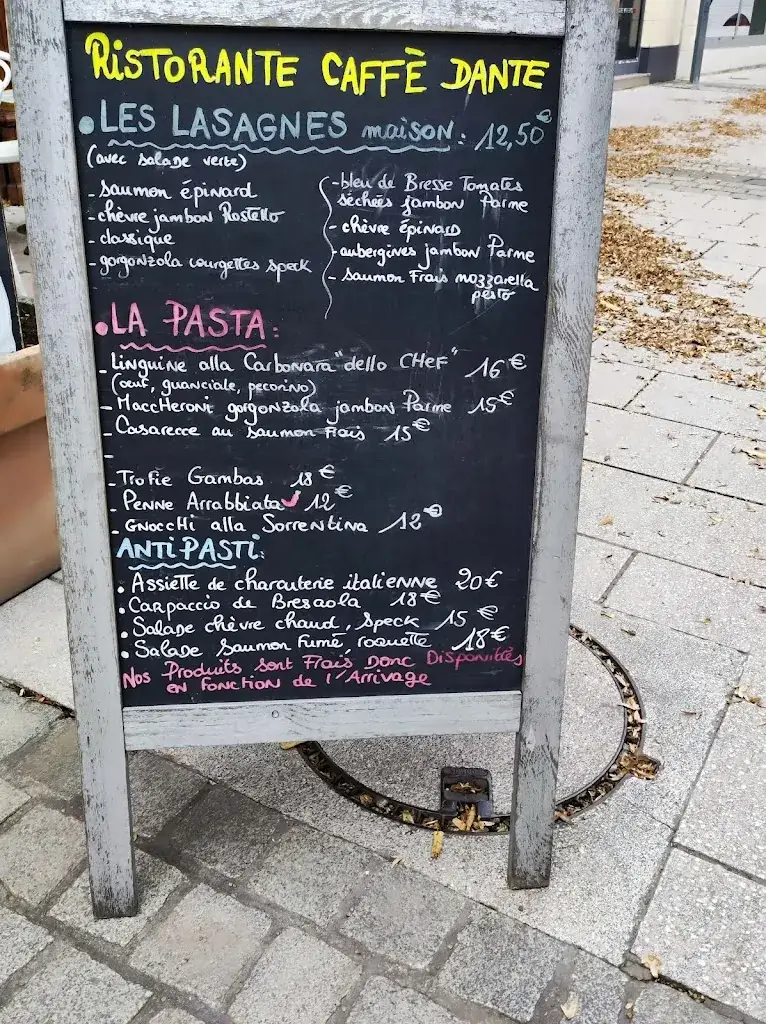 RISTORANTE CAFFÈ DANTE
• LES LASAGNES maison : 12,50€
(avec salade verte)
- saumon épinard
- chèvre jambon Rostello
- classique
- gorgonzola courgettes speck
- bleu de Bresse Tomates
séchées jambon Parme
- chèvre épinard
- aubergines jambon Parme
- saumon Frais mozzarella
pesto
• LA PASTA :
- Linguine alla Carbonara "dello CHEF" 16€
(œuf, guanciale, pecorino)
- MaccHeroni gorgonzola jambon Parme 15€
- Casarecce au saumon Frais 15€
-
- Trofie Gambas 18€
- Penne Arrabbiata 12€
- GnoccHi alla Sorrentina 12€
ANTIPASTI :
• Assiette de charcuterie italienne 20€
• Carpaccio de Bresaola 18€
• Salade chèvre chaud, speck 15€
• Salade saumon Fumé, roquette 18€
Nos Produits sont Frais Donc Disponibles
en Fonction de l'Arrivage